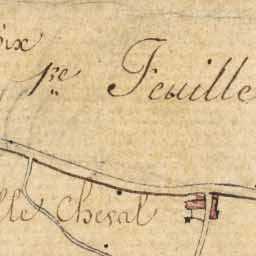 ix
1re Feuille
lle Cheval